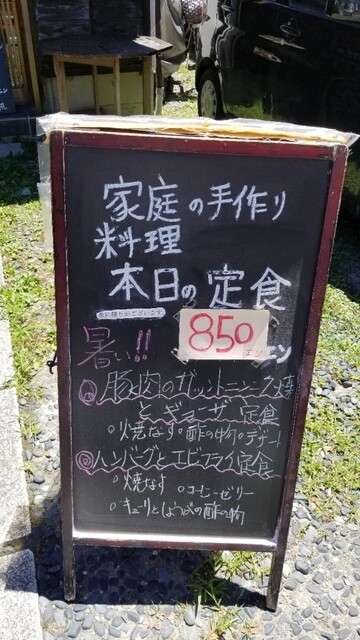 家庭の手作り
料理
本日の定食
数に限りがございます
暑い!! 850エン
エン
豚肉のガットニンニク焼
とギョーザ定食
焼なす 酢の物 デザート
ハンバーグとエビフライ定食
焼なす コーヒーゼリー
キューリとしょうがの酢の物